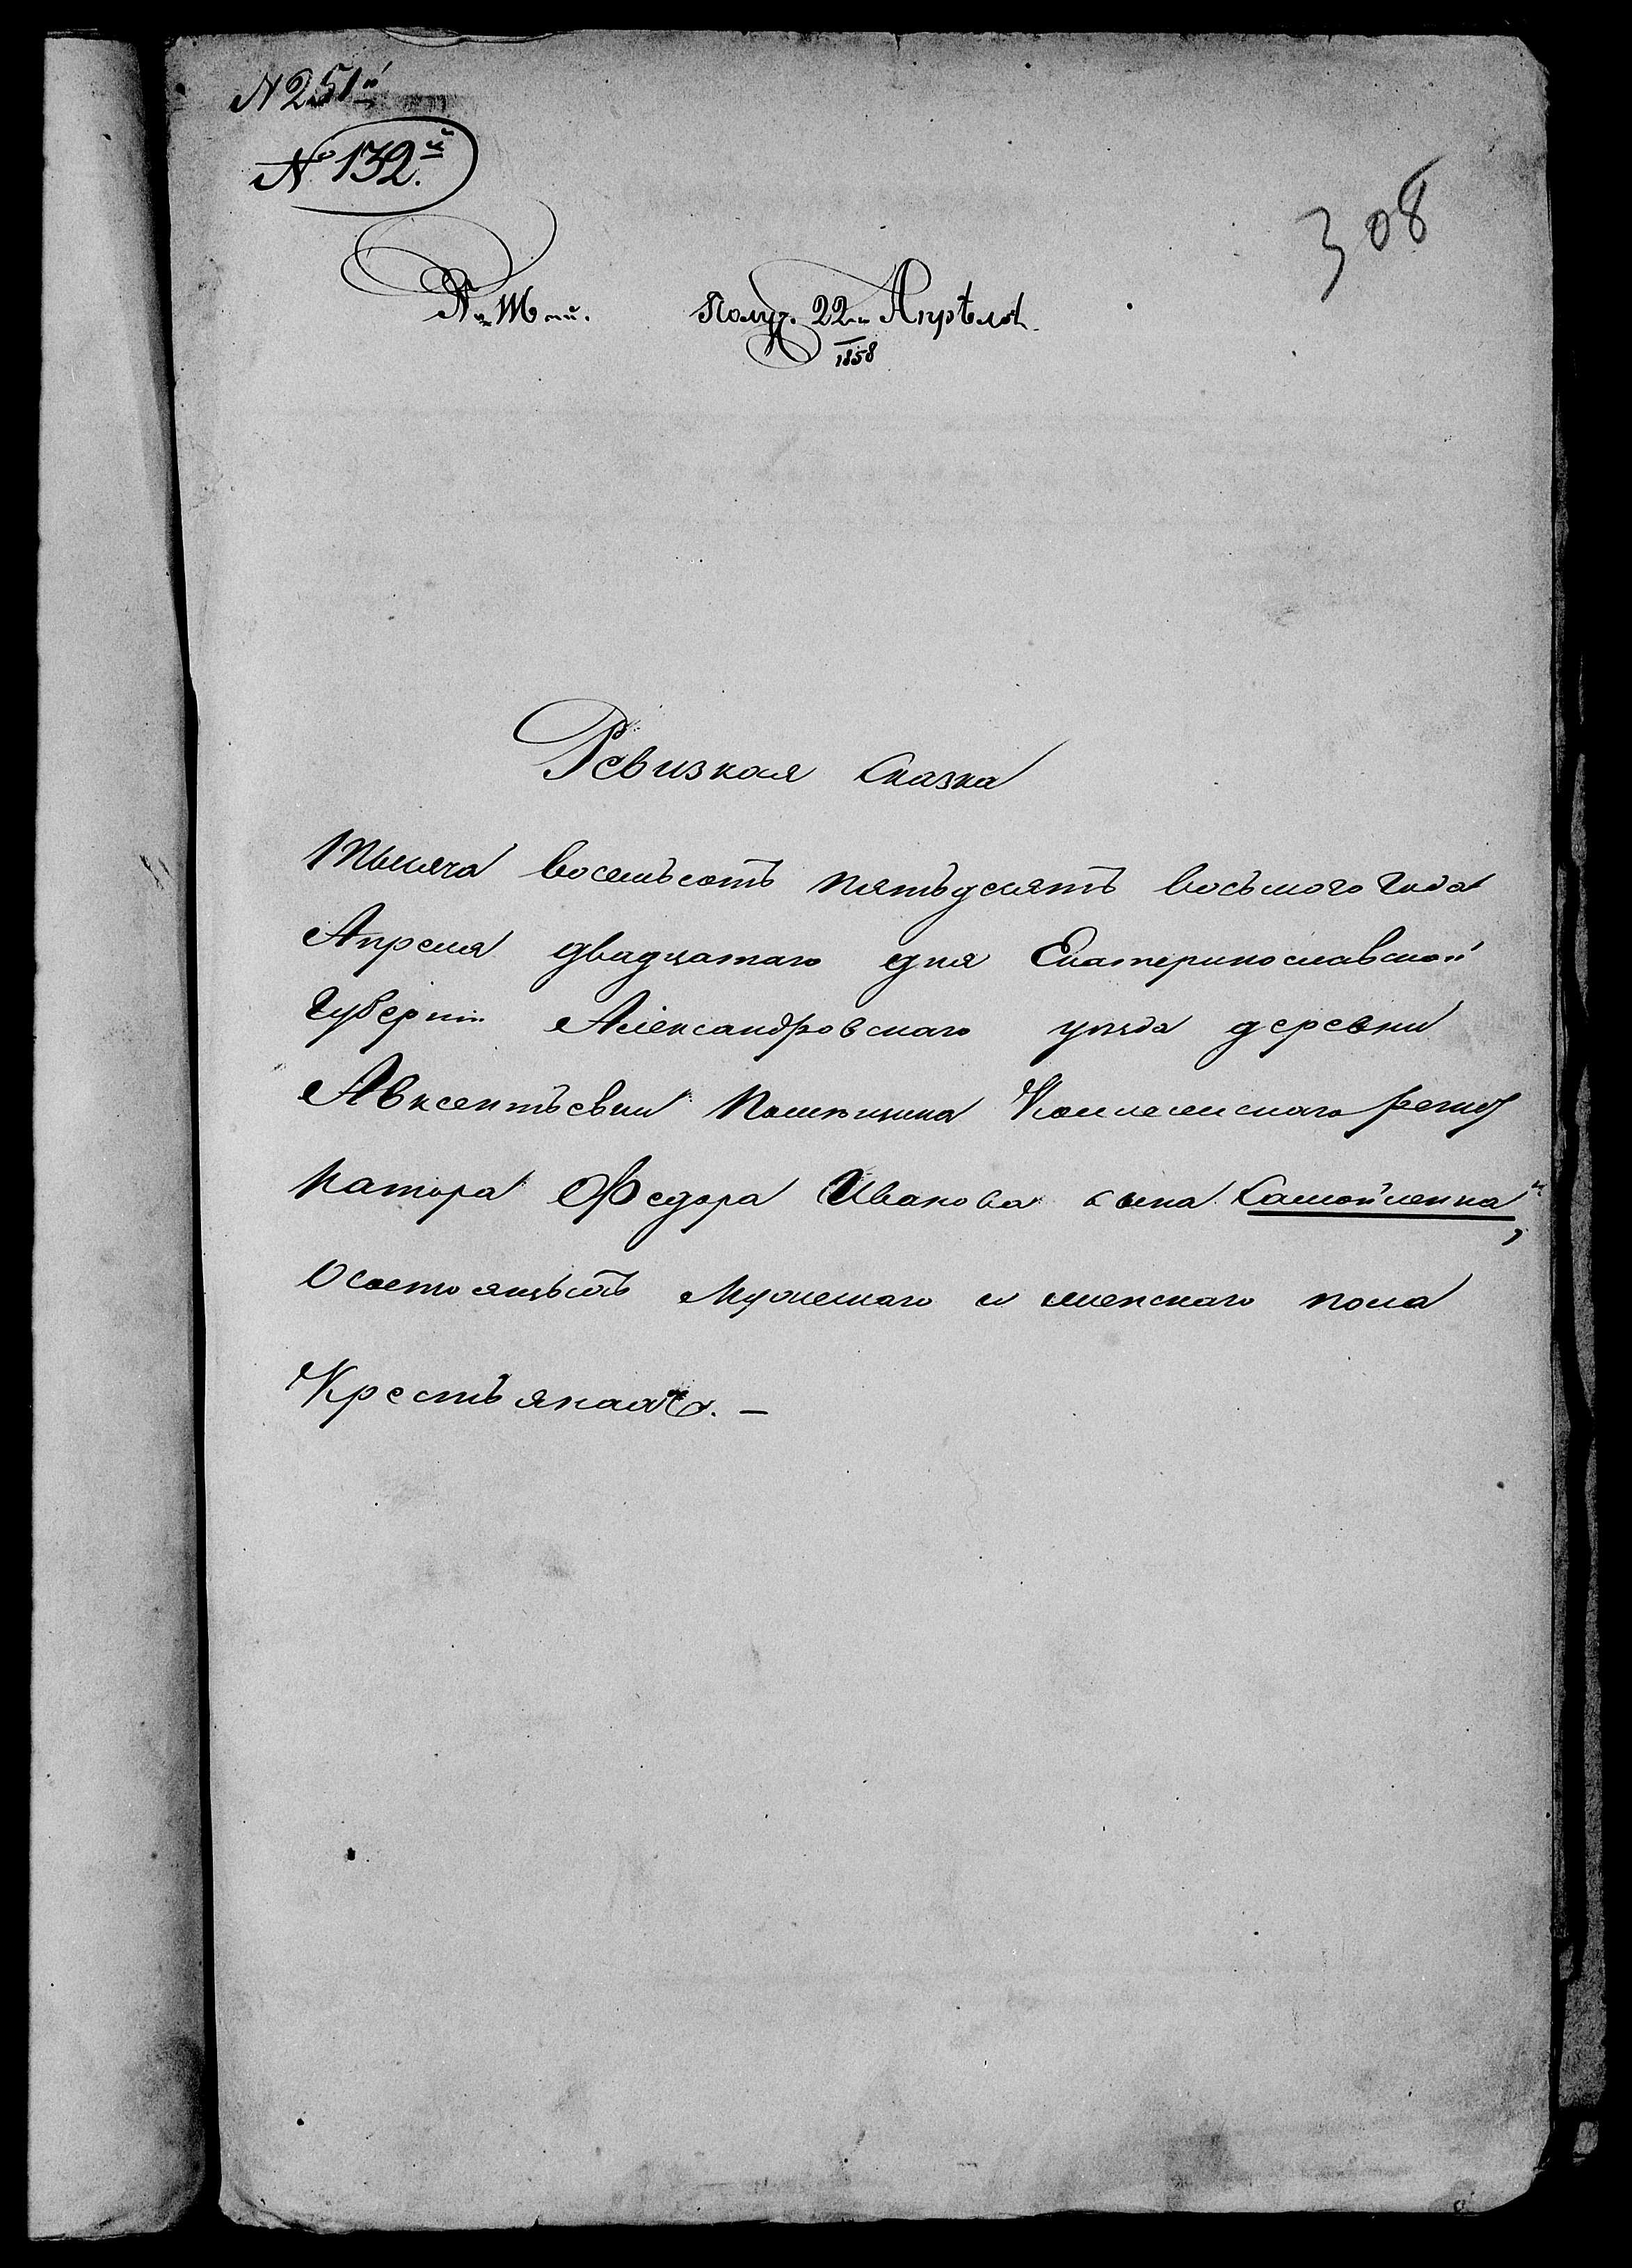 N 251й
№ 132.й
308
Получ. 22го Апрѣля
1858
Ревизкая Сказка
Тысяча восемьсотъ пятьдесятъ восьмого года
Апреля двадцатаго дня Екатеринославской
Губерніи Александровскаго уѣзда деревни
Авксентьевки Помѣщика Коллежскаго регис
тратора Федора Иванова сына Самойленка
О состоящихъ мужескаго и женскаго пола
Крестьянахъ. —